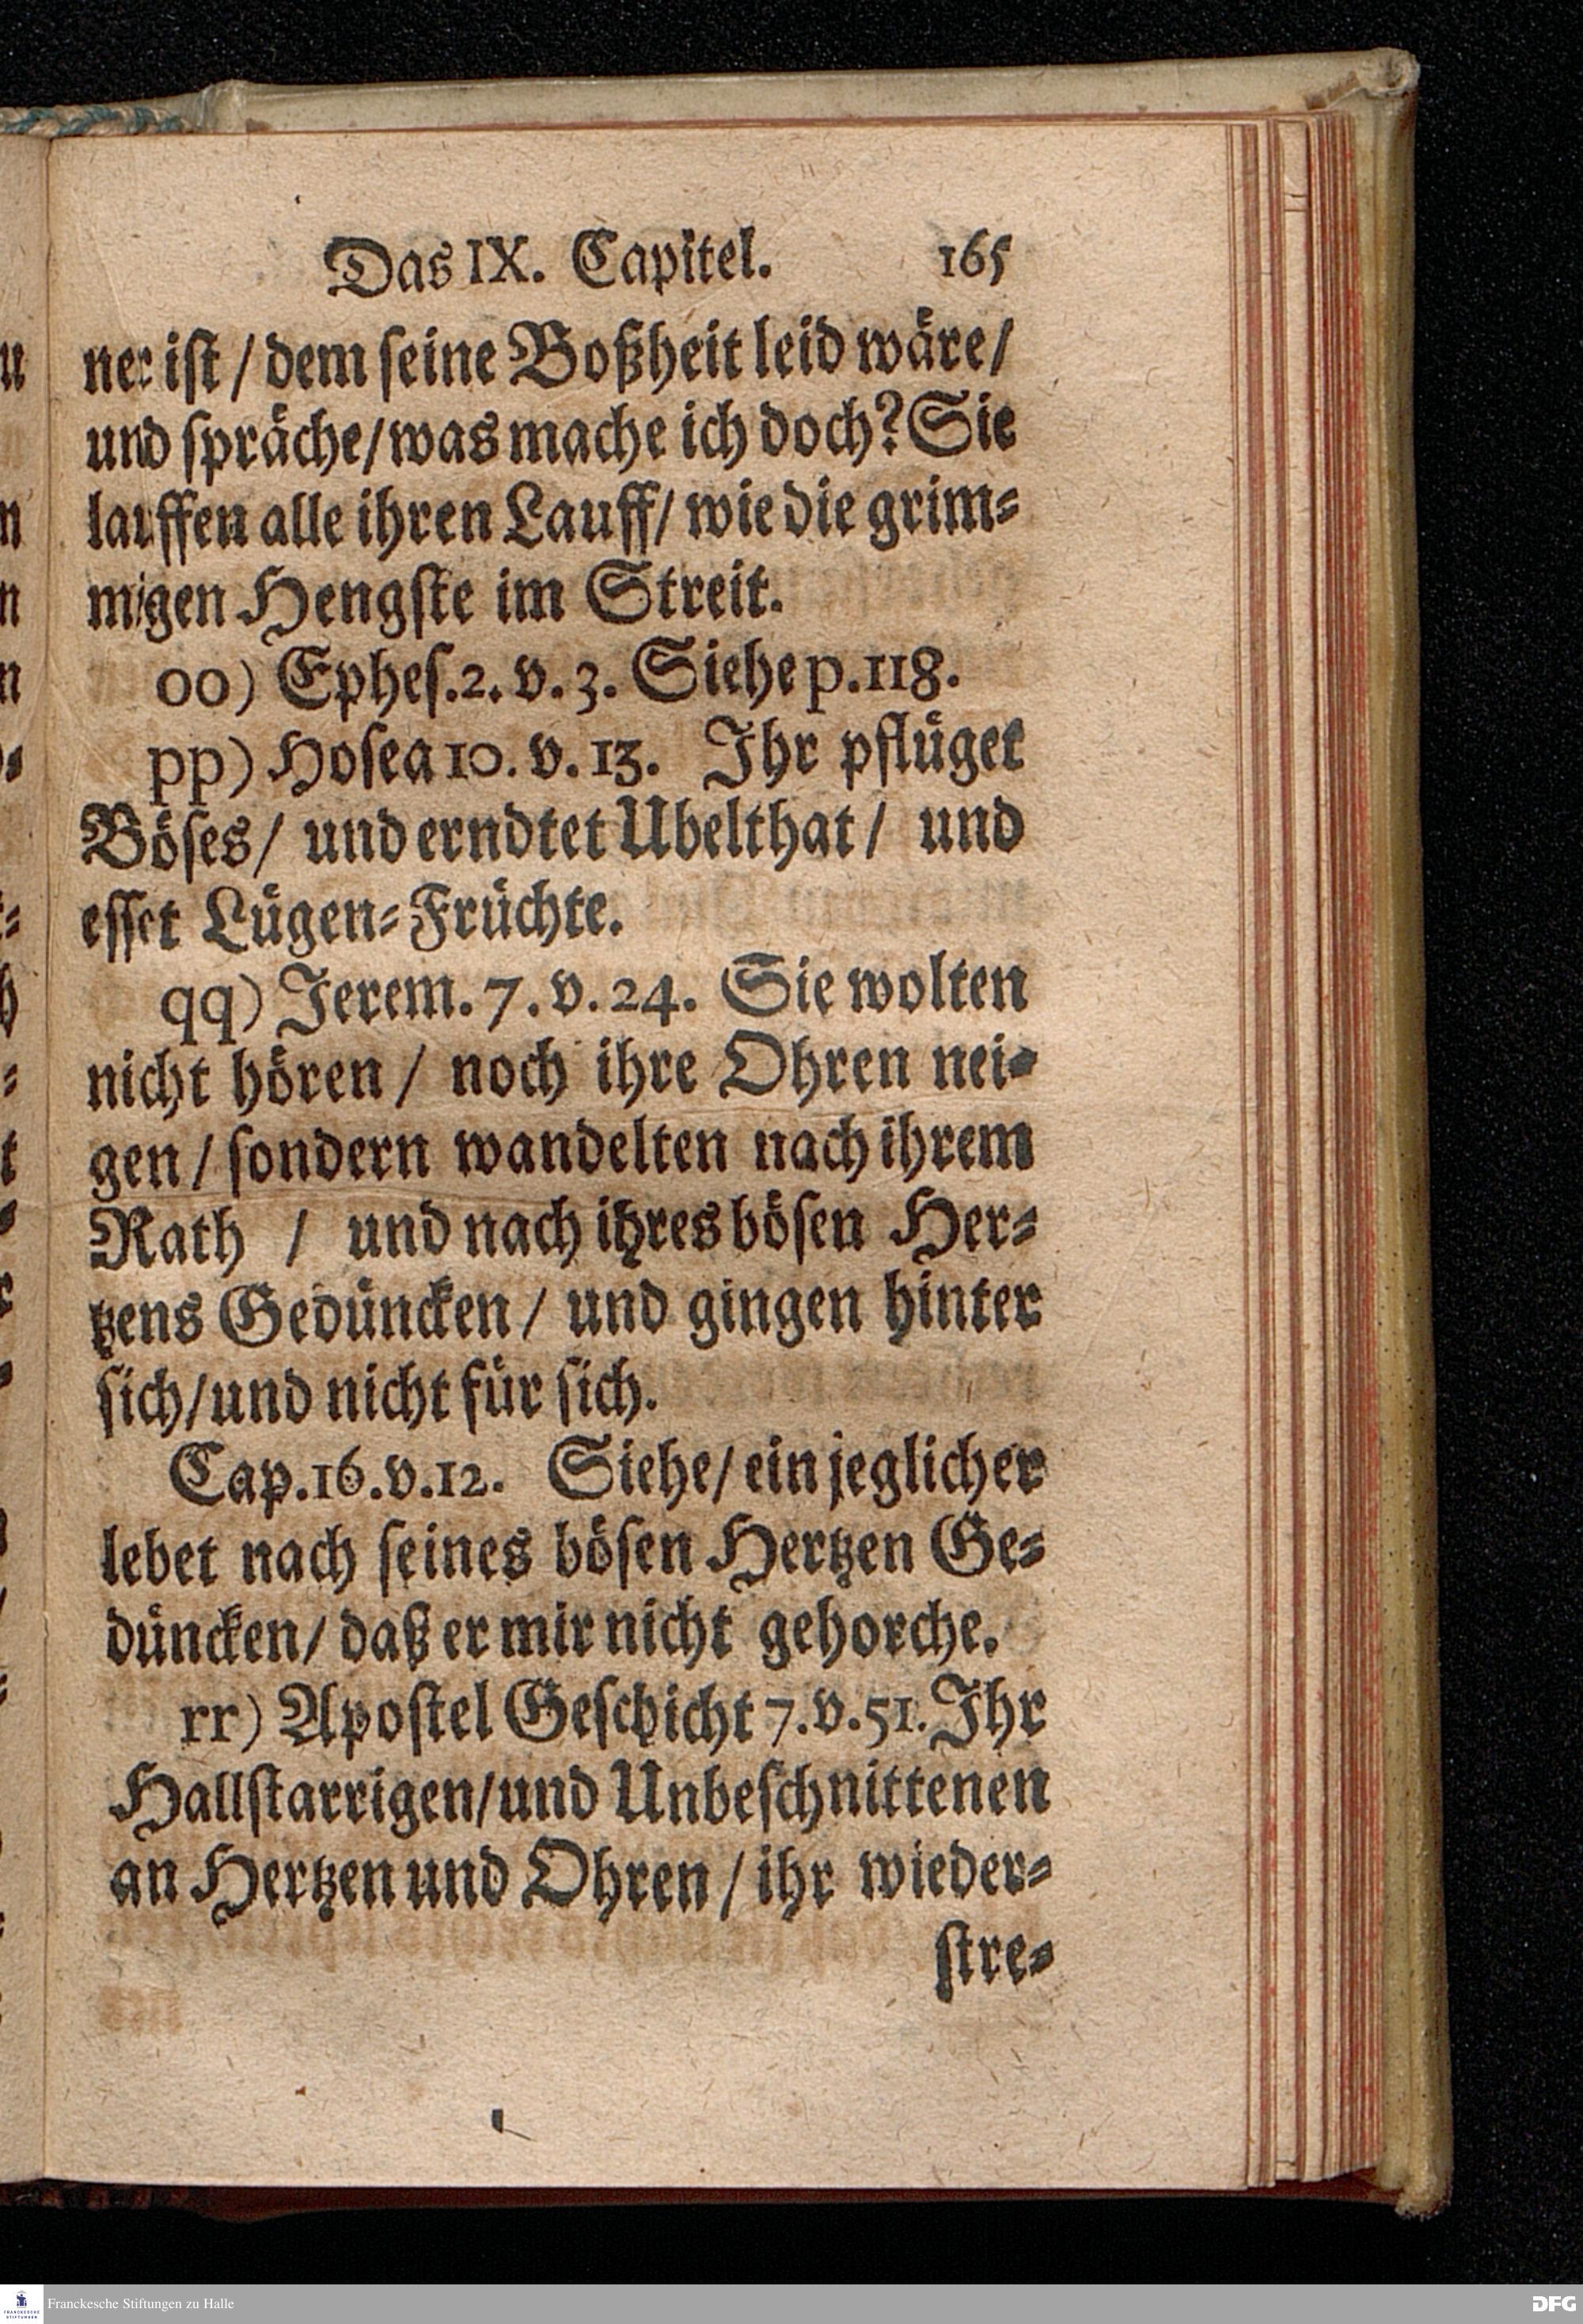 Das IX. Capitel. 165
ner ist / dem seine Boßheit leid wäre /
und spräche / was mache ich doch? Sie
lauffen alle ihren Lauff / wie die grim-
migen Hengste im Streit.
oo) Ephes. 2. v. 3. Siehe p. 118.
pp) Hosea 10. v. 13. Ihr pflüget
Böses / und erndtet Ubelthat / und
esset Lügen-Früchte.
qq) Jerem. 7. v. 24. Sie wolten
nicht hören / noch ihre Ohren nei-
gen / sondern wandelten nach ihrem
Rath / und nach ihres bösen Her-
tzens Gedüncken / und gingen hinter
sich / und nicht für sich.
Cap. 16. v. 12. Siehe / ein jeglicher
lebet nach seines bösen Hertzen Ge-
düncken / daß er mir nicht gehorche.
rr) Apostel Geschicht 7. v. 51. Ihr
Hallstarrigen / und Unbeschnittenen
an Hertzen und Ohren / ihr wieder-
stre-
FRANCKESCHE STIFTUNGEN
Franckesche Stiftungen zu Halle
DFG